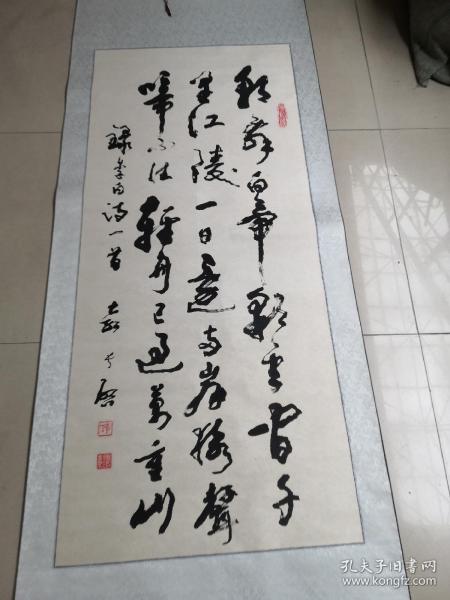 朝辞白帝彩云间千
里江陵一日還两岸猿聲
啼不住輕舟已過萬重山
錄李白詩一首
孔夫子旧书网
www.kongfz.com